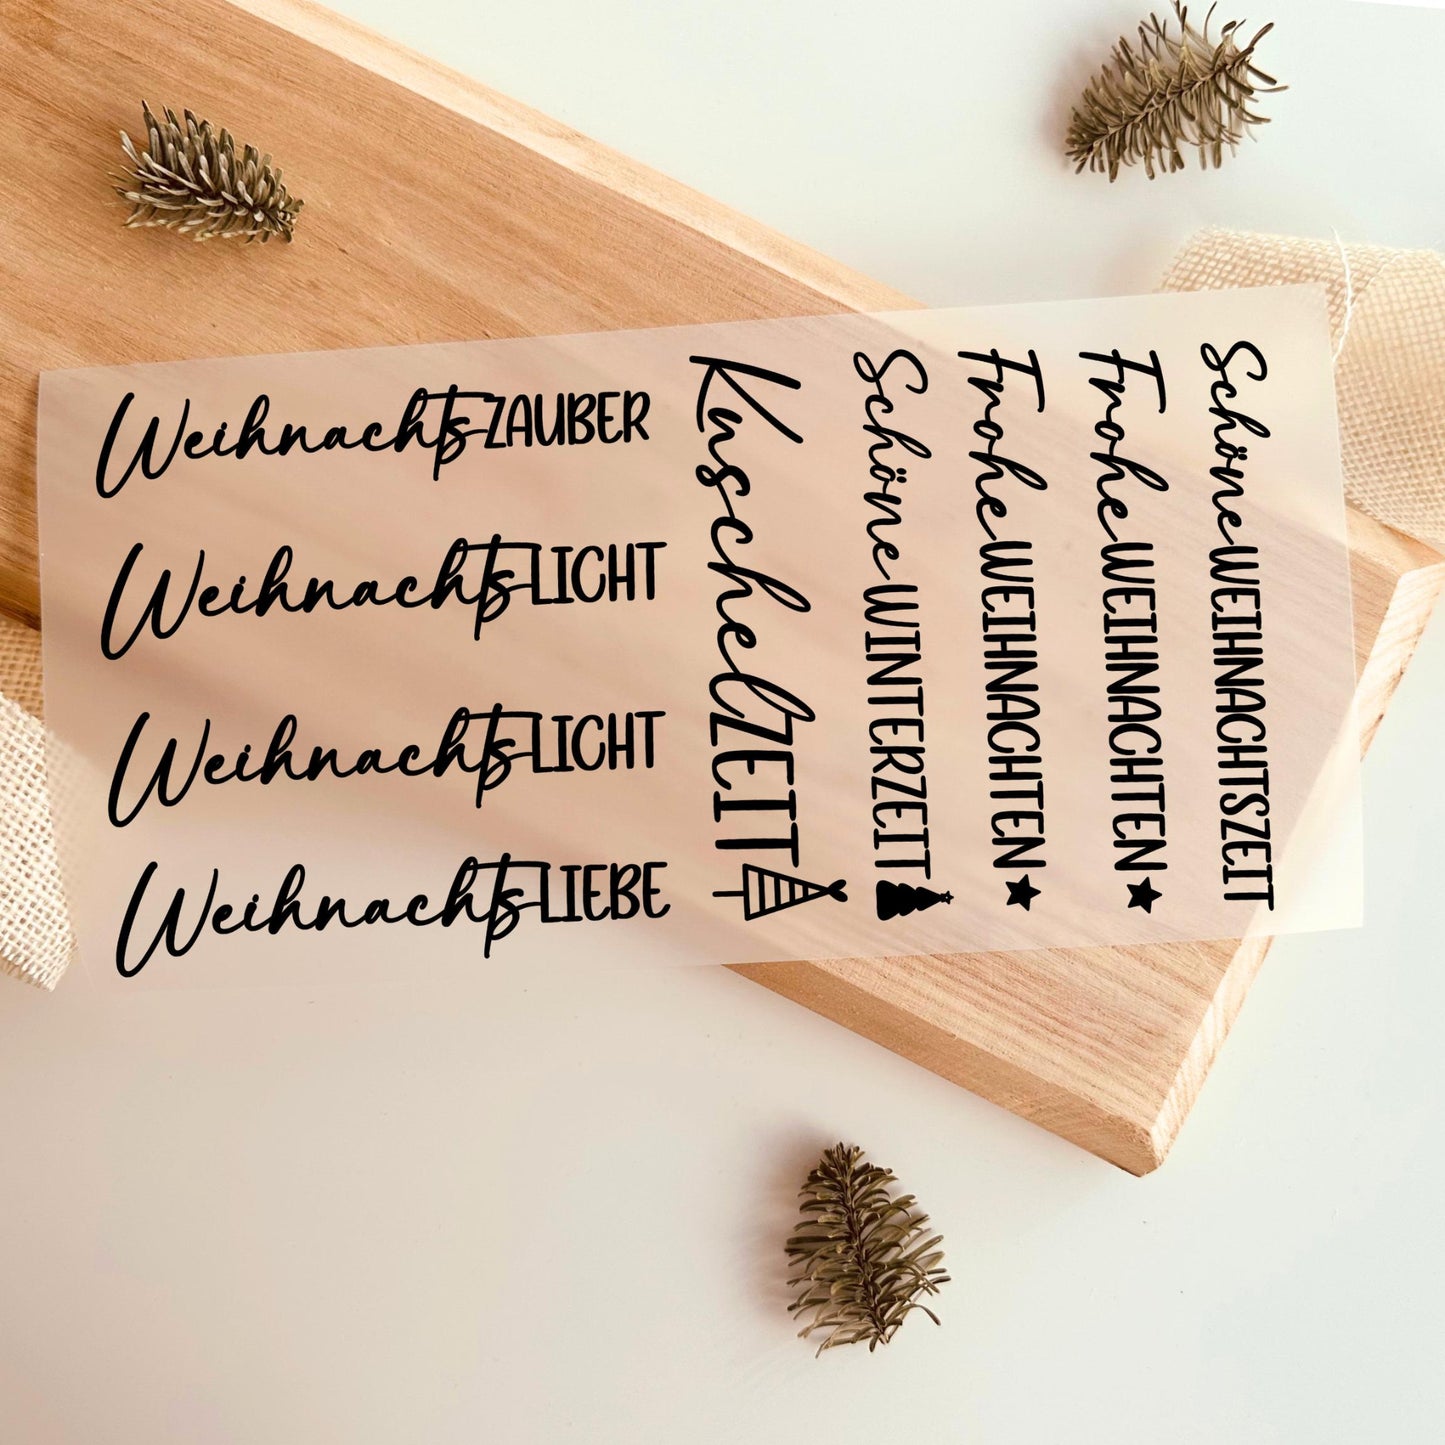 WeihnachtsZAUBER
WeihnachtsLICHT
WeihnachtsLICHT
WeihnachtsLIEBE
KuschelZEIT
Schöne WINTERZEIT
Frohe WEIHNACHTEN
Frohe WEIHNACHTEN
Schöne WEIHNACHTSZEIT